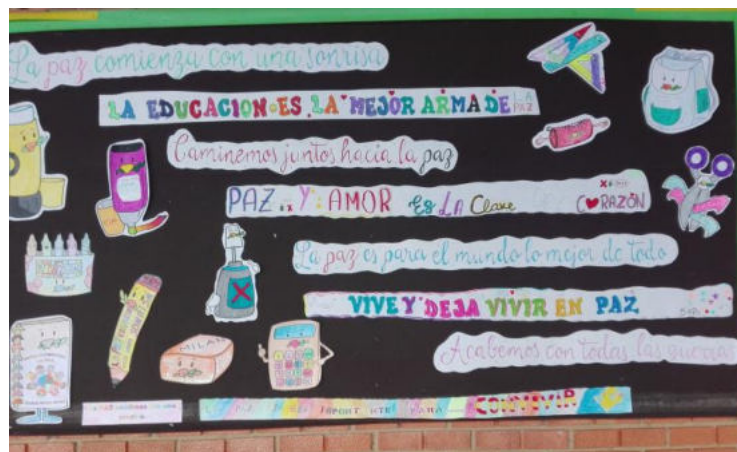 La paz comienza con una sonrisa
LA EDUCACION ES LA MEJOR ARMA DE LA PAZ
Caminemos juntos hacia la paz
PAZ Y AMOR ES LA Clave CORAZÓN
La paz es para el mundo lo mejor de todo
VIVE Y DEJA VIVIR EN PAZ
Acabemos con todas las guerras
MILAN
CONVIVIR